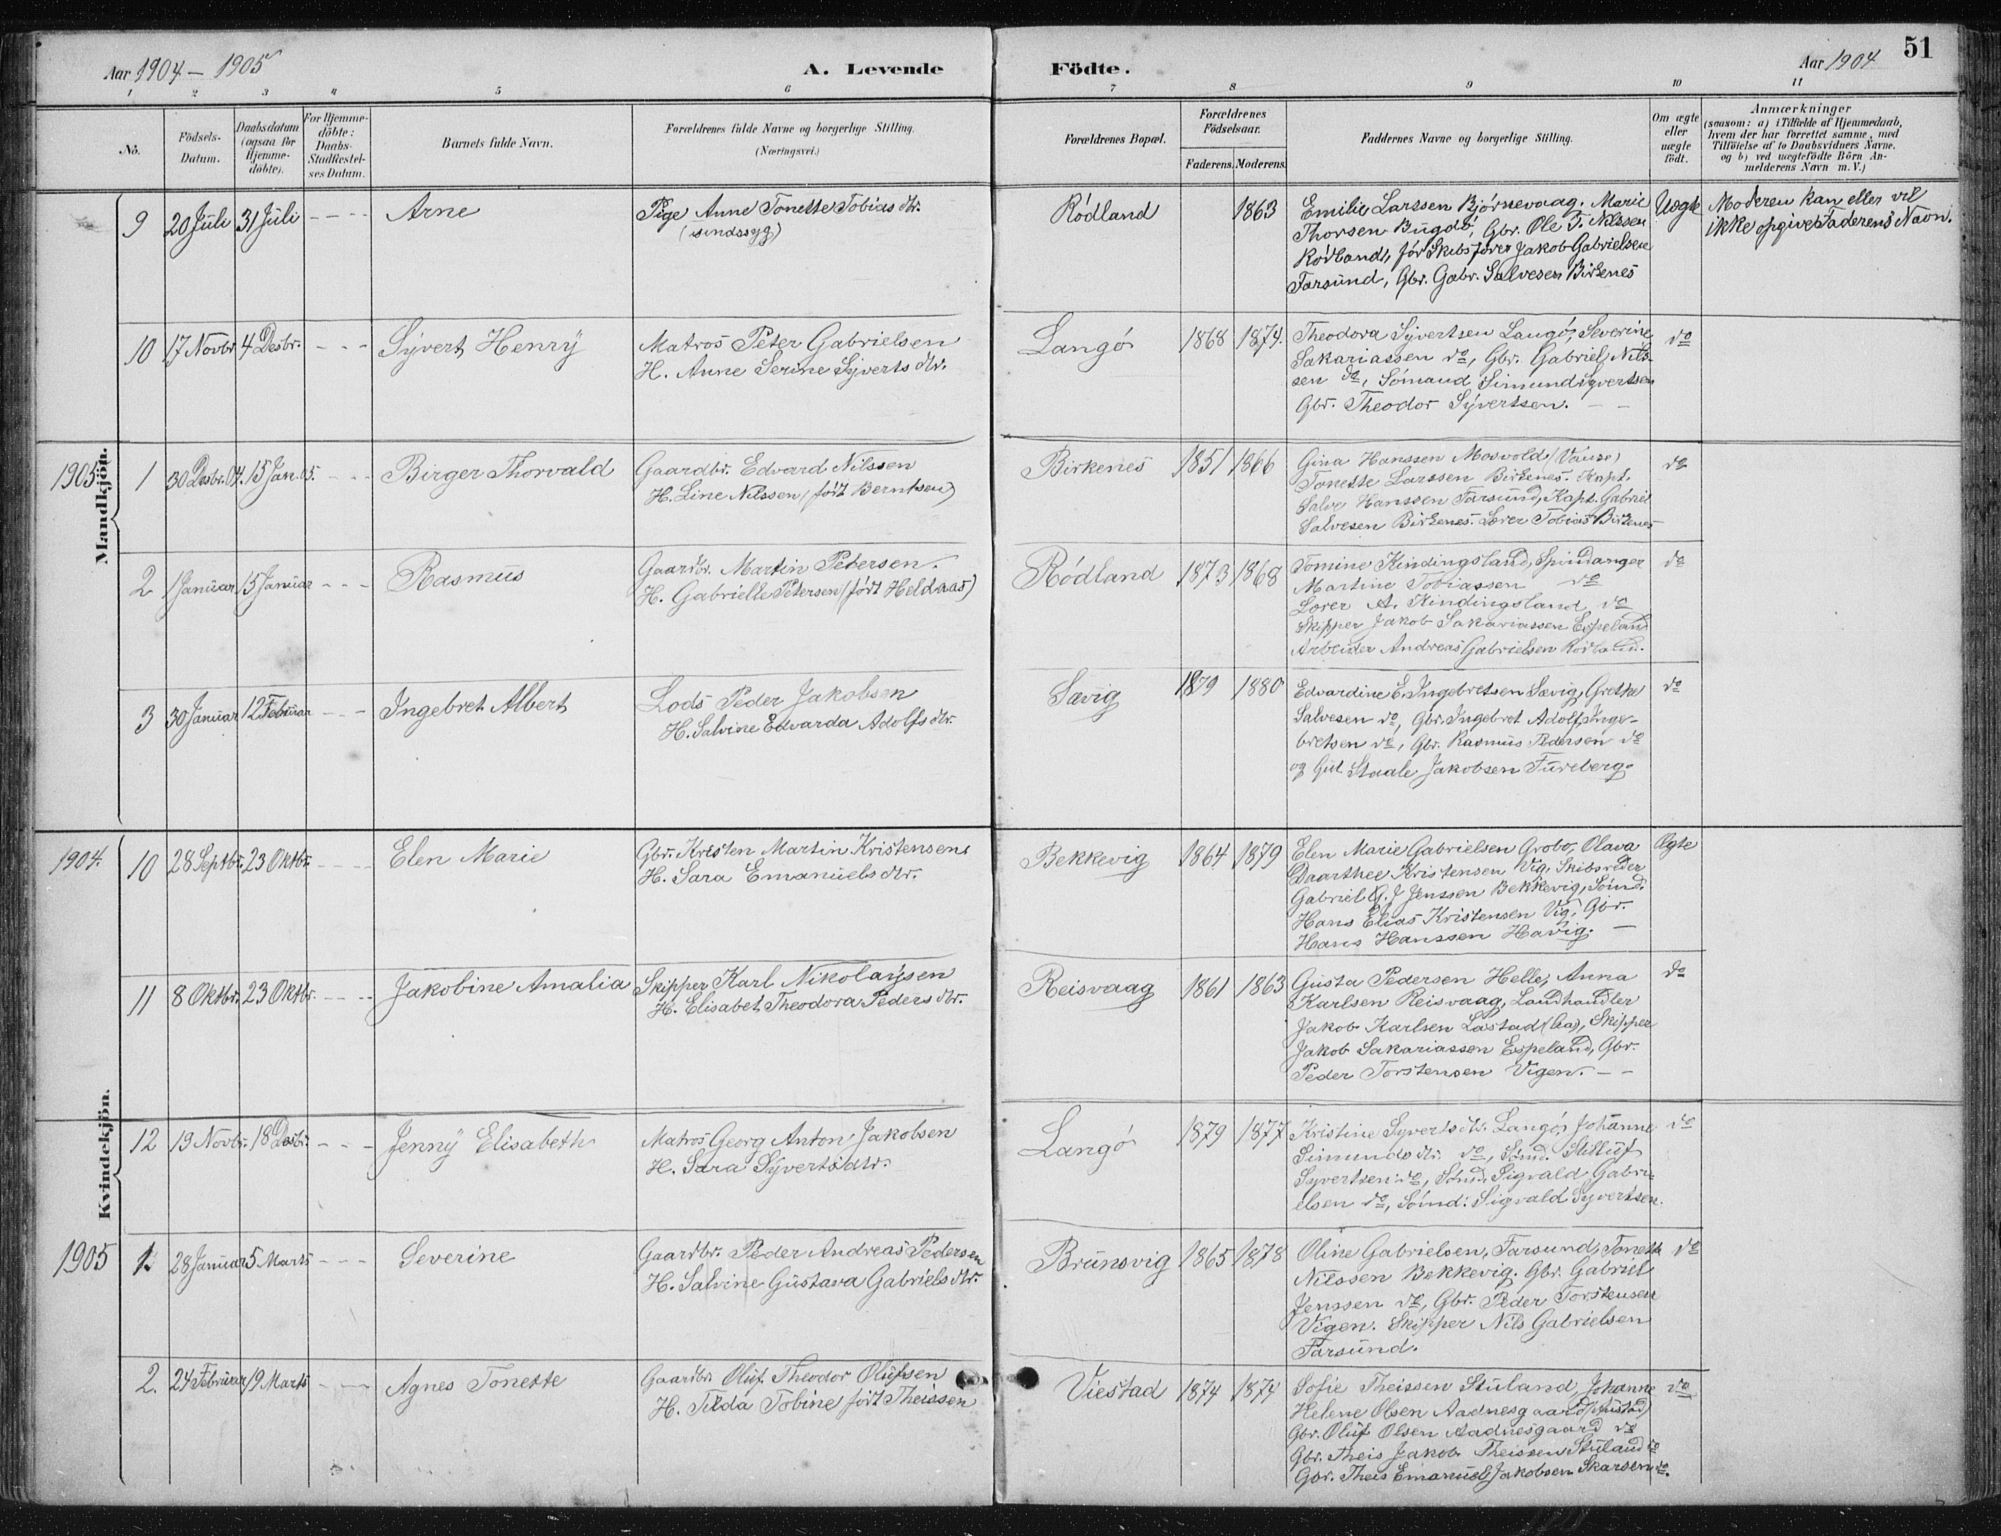 Aar 1904 – 1905
A. Levende Födte.
Aar 1904
51
1 2 3 4 5 6 7 8 9 10 11
No.
Födsels-
Datum.
Daabsdatum
(ogsaa for
Hjemme-
döbte).
For Hjemme-
döbte:
Daabs-
Stadfæstel-
ses Datum.
Barnets fulde Navn.
Forældrenes fulde Navne og borgerlige Stilling.
(Næringsvei.)
Forældrenes Bopæl.
Forældrenes
Födselsaar.
Faderens. Moderens.
Faddernes Navne og borgerlige Stilling.
Om ægte
eller
uægte
födt.
Anmærkninger
(saasom: a) i Tilfælde af Hjemmedaab,
hvem der har forrettet samme, med
Tilföielse af to Daabsvidners Navne.
og b) ved uægtefödte Börn An-
melderens Navn m. V.)
Mandkjön.
9 20 Juli 31 Juli - - - - Arne
Pige Anne Tonette Tobiasdtr.
(sindssyg)
Rödland 1863
Emilie Larssen Bjørnevaag, Marie
Thorsen Bugdö, Gbr. Ole T. Nilssen
Rödland, för Skibsförer Jakob Gabrielsen
Farsund, Gbr. Gabr. Salvesen Birkenes
Uegte
Moderen kan eller vil
ikke opgive Faderens Navn.
10 17 Novbr 4 Desbr. - - - Syvert Henry
Matros Peter Gabrielsen
H. Anne Serine Syvertsdtr.
Langö 1868 1874.
Theodora Syvertsen Langö, Severine
Sakariassen do, Gbr. Gabriel Nils-
sen do, Sömand Simund Syvertsen
Gbr. Theodor Syvertsen. - -
do
1905 1 30 Desbr. 04. 15 Jan. 05. - - - Birger Thorvald
Gaardbr. Edvard Nilssen
H. Line Nilssen (født Berntsen)
Birkenes 1851 1866
Gina Hanssen Mosvold (Vanse)
Tonette Larssen Birkenes. Kapt.
Salve Hanssen Farsund, Kapt. Gabriel
Salvesen Birkenes. Lærer Tobias Birkenes
do
2 1 Januar 15 Januar - - - Rasmus
Gaardbr. Martin Petersen.
H. Gabrielle Petersen (født Heldaas)
Rödland 1873 1868
Tomine Kindingsland, Spindanger
Martine Tobiassen do
Lærer A. Kindingsland do
Skipper Jakob Sakariassen Espeland
Arbeider Andreas Gabrielsen Rödland.
do
3 30 Januar 12 Februar - - - Ingebret Albert
Lods Peder Jakobsen
H. Salvine Edvarda Adolfsdtr.
Sævig 1879 1880
Edvardine E. Ingebretsen Sævig, Grethe
Salvesen do, Gbr. Ingebret Adolf Inge-
bretsen do, Gbr. Rasmus Pedersen do
og Gul. Staale Jakobsen Fureberg.
do
Kvindekjön.
1904. 10 28 Septbr. 23 Oktbr. - - - - Elen Marie
Gbr. Kristen Martin Kristensen
H. Sara Emanuelsdtr.
Bekkevig 1864 1879
Elen Marie Gabrielsen Grobo, Olava
Daarthee Kristensen Vig, Skibsreder
Gabriel G. J Jenssen Bekkevig, Sömd.
Hans Elias Kristensen Vig, Gbr.
Hans Hanssen Havig. -
Ægte
11 8 Oktbr. 23 Oktbr. - - - - Jakobine Amalia
Skipper Karl Nikolaysen
H. Elisabet Theodora Pedersdtr.
Reisvaag 1861 1863
Gusta Pedersen Helle, Anna
Karlsen Reisvaag, Landhandler
Jakob Karlsen Lastad (Aa), Skipper
Jakob Sakariassen Espeland, Gbr.
Peder Torstensen Vigen. - -
do
12 19 Novbr. 18 Desbr. - - - Jenny Elisabeth
Matros Georg Anton Jakobsen
H. Sara Syvertsdtr.
Langö 1879 1877
Kristine Syvertsdtr. Langö, Johanne
Simundsdtr. do, Sömd.
Syvertsen do, Sömd. Sigvald Gabri-
elsen do, Sömd: Sigvald Syvertsen.
do
1905 1. 28 Januar 5 Marts - - - Severine
Gaardbr. Peder Andreas Pedersen
H. Salvine Gustava Gabrielsdtr.
Brunsvig 1865 1878
Oline Gabrielsen, Farsund, Tonette
Nilssen Bekkevig. Gbr. Gabriel
Jenssen do, Gbr. Peder Torstensen
Vigen. Skipper Nils Gabrielsen
Farsund.
do
2. 24 Februar 19 Marts - - - Agnes Tonette
Gaardbr. Oluf Theodor Olufsen
H. Tilda Tobine født Theissen
Viestad 1874 1874
Sofie Theissen Stuland, Johanne
Helene Olsen Aadnesgaard (Austad)
Gbr. Oluf Olsen Aadnesgaard do
Gbr. Theis Jakob Theissen Stuland do
Gbr. Theis Emanuel Jakobsen Skarsen do.
do